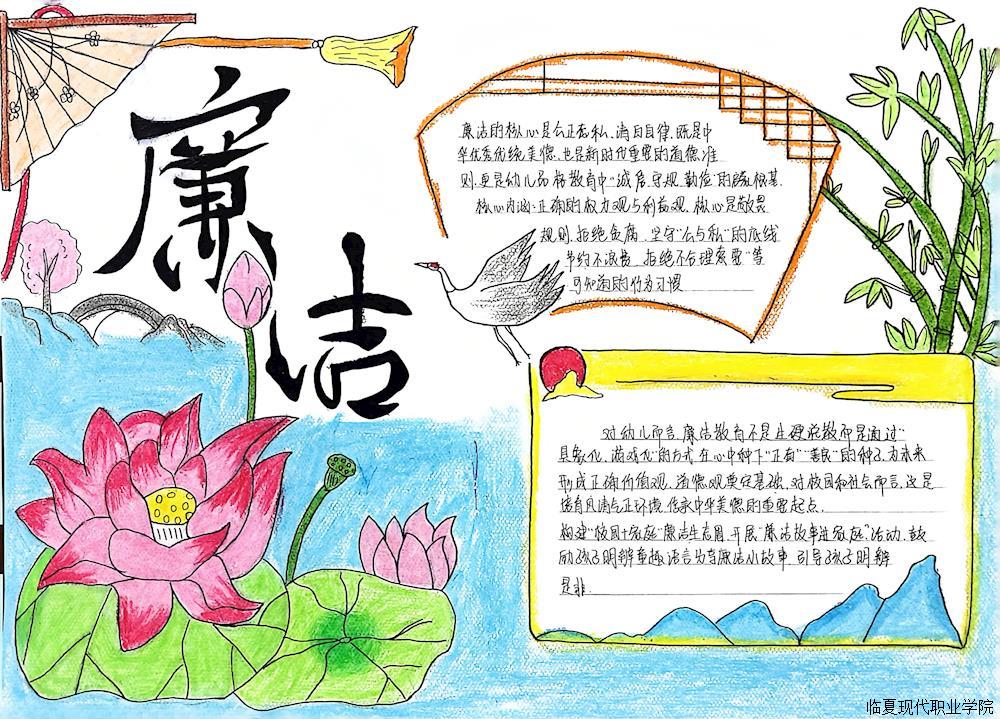 廉洁
廉洁的核心是公正无私、清白自律,既是中
华优秀传统美德,也是新时代重要的道德准
则,更是幼儿品格教育中"诚信、守规、勤俭"的根基.
核心内涵:正确的权力观与利益观,核心是敬畏
规则、拒绝贪腐、坚守"公与私"的底线
节约不浪费、拒绝不合理索要"等
可知的行为习惯
对幼儿而言,廉洁教育不是生硬说教而是通过"
具象化、游戏化"的方式,在心中种下"正直""美良"的种子,为未来
形成正确价值观、道德观奠定基础,对校园和社会而言,这是
培育风清气正环境、传承中华美德的重要起点.
构建"校园+家庭"廉洁生态圈,开展"廉洁故事进家庭"活动,鼓
励孩子明辨童趣语言分享廉洁小故事,引导孩子明辨
是非.
临夏现代职业学院